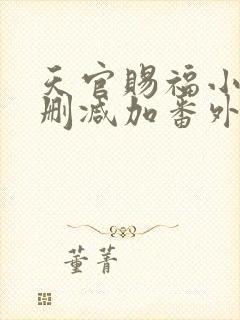 天官赐福小
删减加番外
董菁